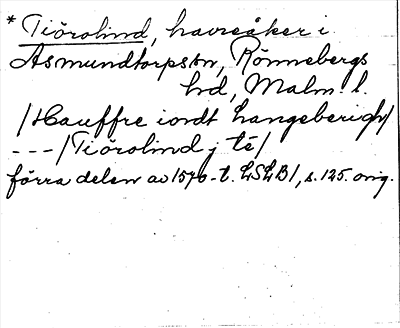 * Tiörolind, havreåker i
Asmundtorpstn, Rönnebergs
hd, Malm. l.
/Hauffre iordt hangeberigh/
---/Tiörolind j té/
förra delen av 1570-t. LSLB1, s. 125. orig.